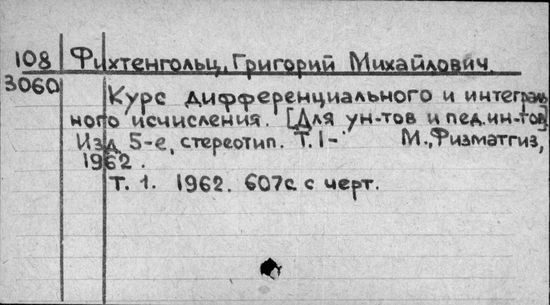 108 Фихтенгольц, Григорий Михайлович.
3060
Курс дифференциального и интеграль
ного исчисления. [Для ун-тов и пед.ин-тов]
Изд. 5-е, стереотип. Т. 1- М., Физматгиз,
1962.
Т. 1. 1962. 607с. с черт.